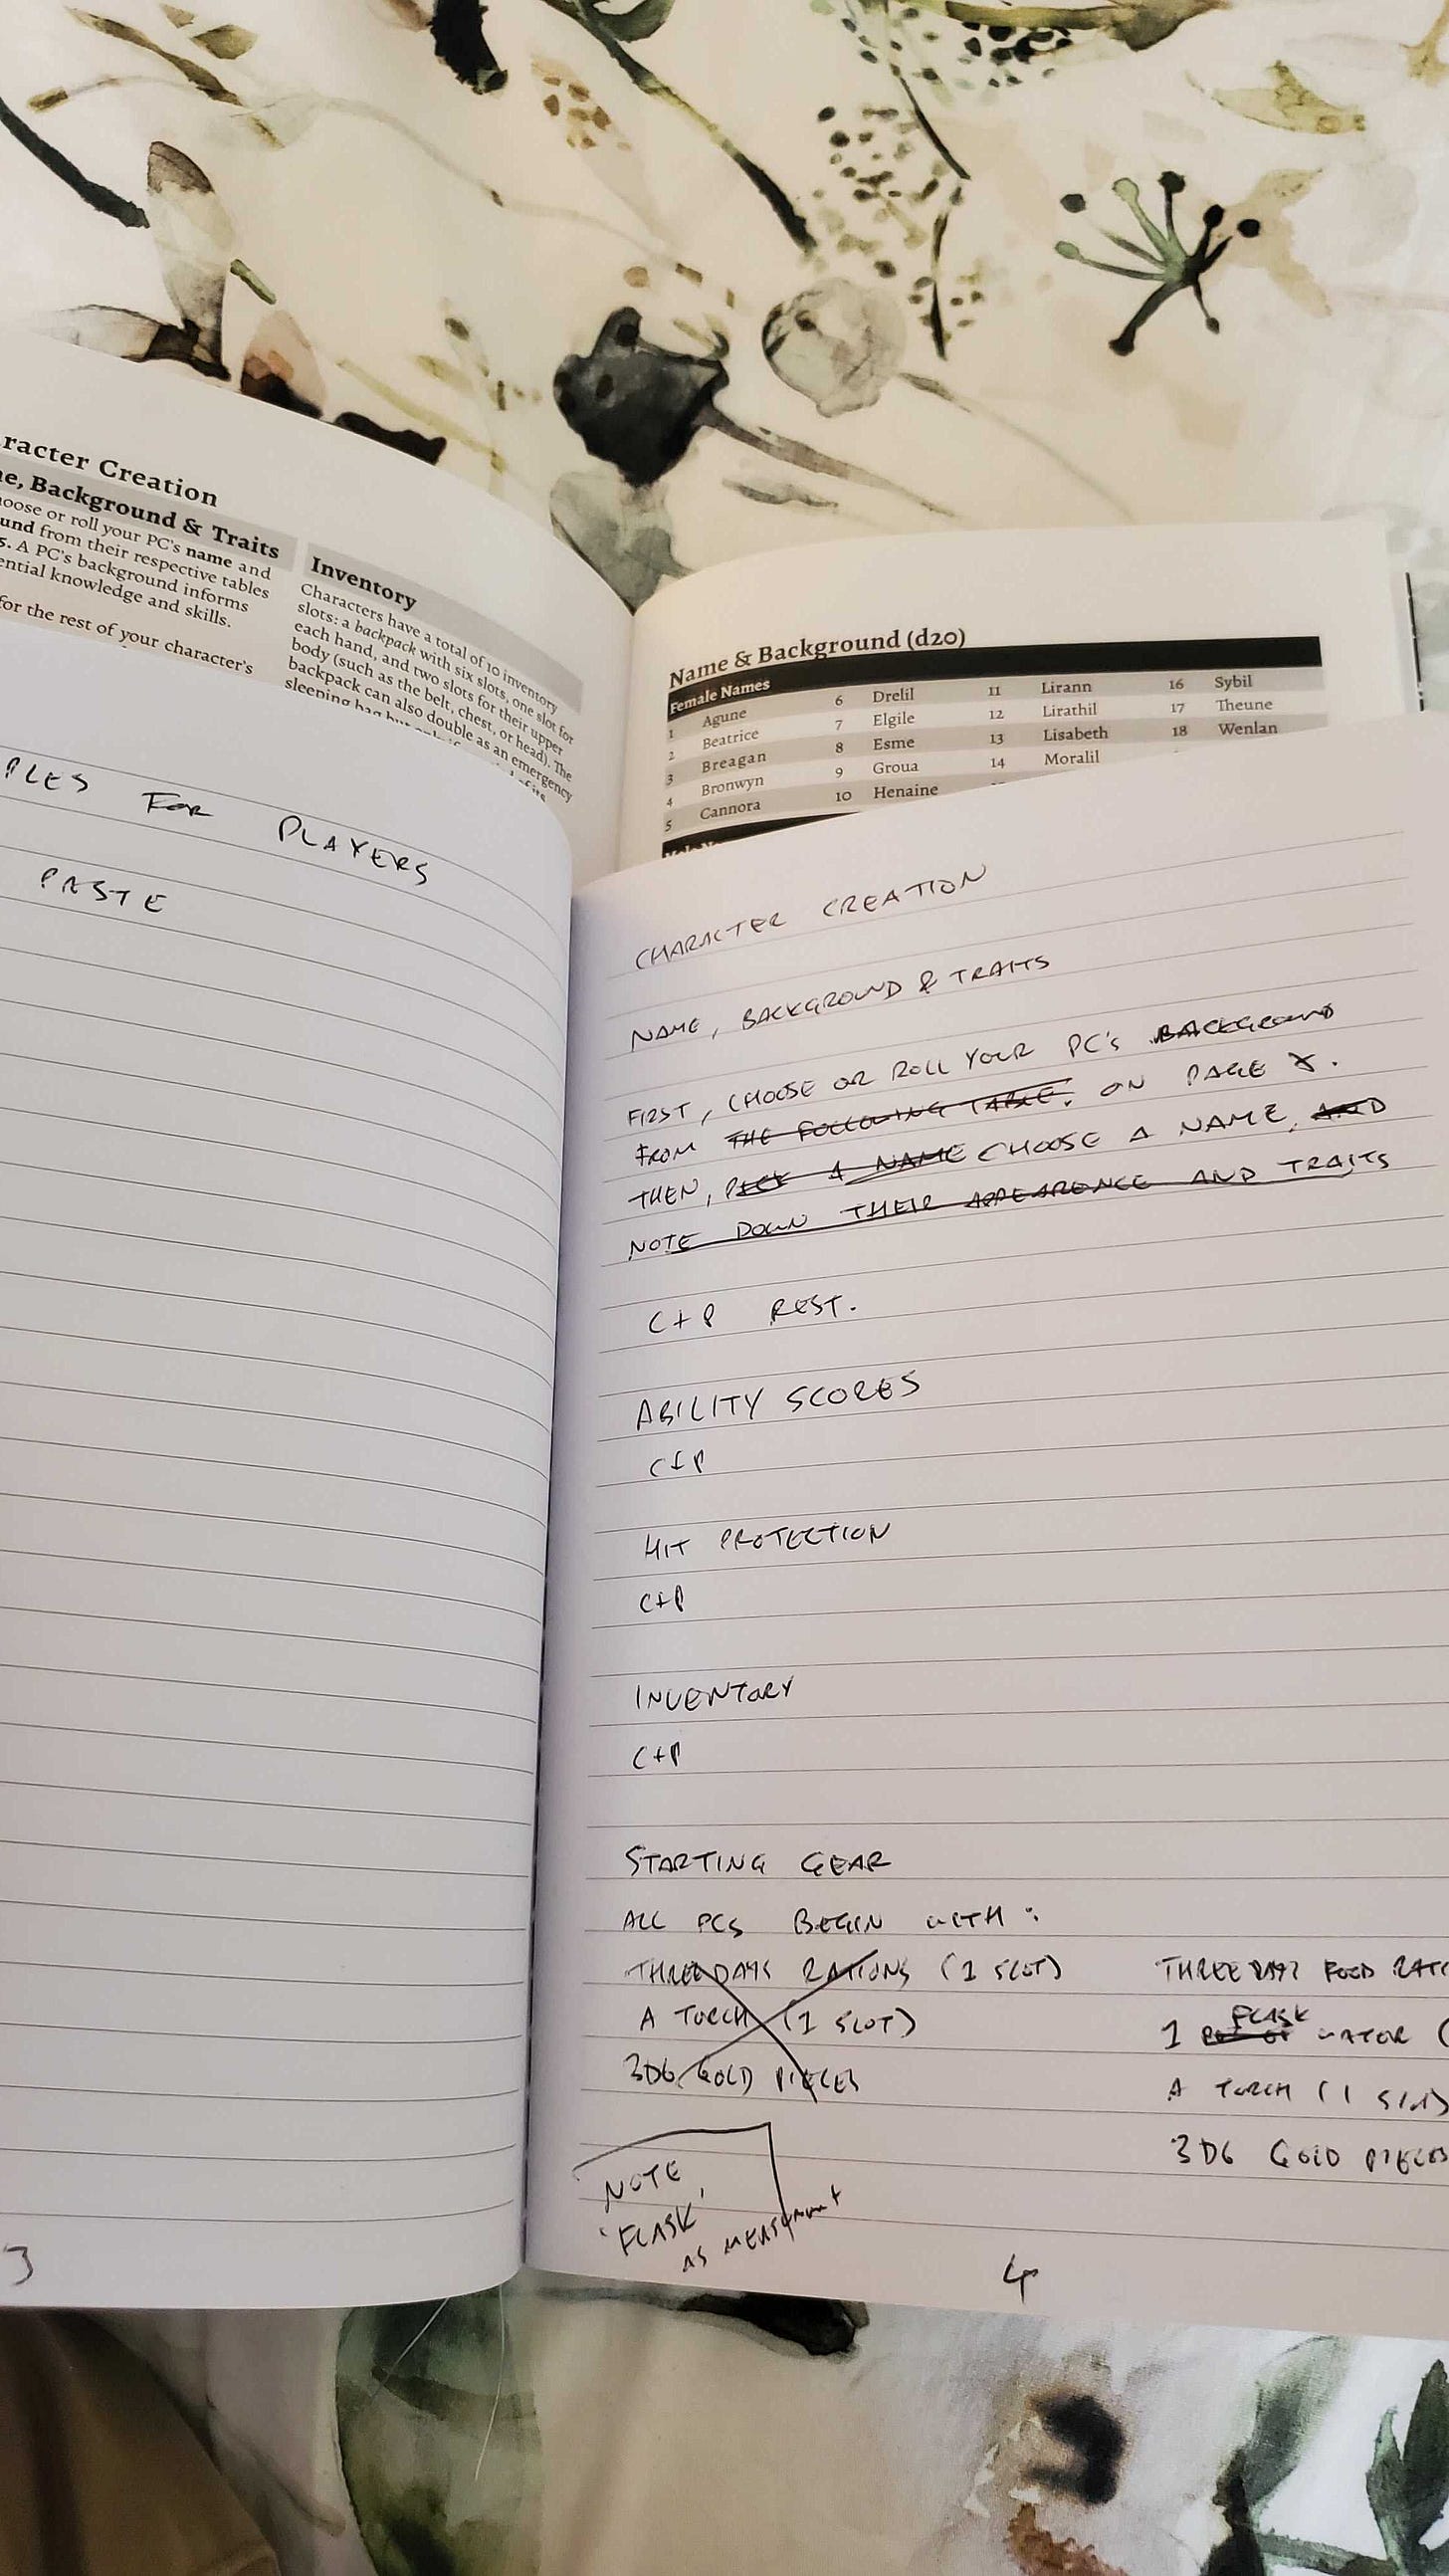 racter Creation
e, Background & Traits
oose or roll your PC's name and
und from their respective tables
5. A PC's background informs
ential knowledge and skills.
for the rest of your character's
Inventory
Characters have a total of 10 inventory
slots: a backpack with six slots, one slot for
each hand, and two slots for their upper
body (such as the belt, chest, or head). The
backpack can also double as an emergency
sleeping bag but only if
Name & Background (d20)
Female Names
1 Agune 6 Drelil 11 Lirann 16 Sybil
2 Beatrice 7 Elgile 12 Lirathil 17 Theune
3 Breagan 8 Esme 13 Lisabeth 18 Wenlan
4 Bronwyn 9 Groua 14 Moralil
5 Cannora 10 Henaine
PLES FOR PLAYERS
PASTE
3
CHARACTER CREATION
NAME, BACKGROUND & TRAITS
FIRST, CHOOSE OR ROLL YOUR PC'S BACKGROUND
FROM THE FOLLOWING TABLE. ON PAGE X.
THEN, PICK A NAME CHOOSE A NAME, AND
NOTE DOWN THEIR APPEARENCE AND TRAITS
C+P REST.
ABILITY SCORES
C+P
HIT PROTECTION
C+P
INVENTORY
C+P
STARTING GEAR
ALL PCS BEGIN WITH:
THREE DAYS RATIONS (1 SLOT)
A TORCH (1 SLOT)
3D6 GOLD PIECES
THREE DAYS FOOD RATI
FLASK
1 WATER (
A TORCH (1 SLOT)
3D6 GOLD PIECES
NOTE
'FLASK'
AS MEASURMENT
4